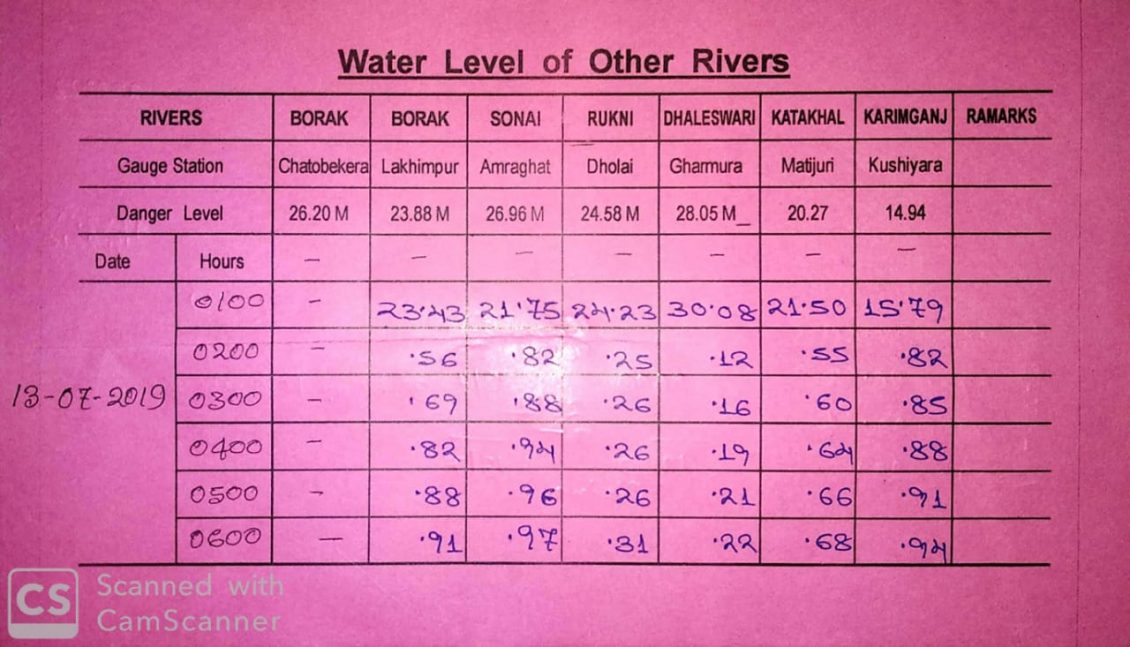 Water Level of Other Rivers
RIVERS BORAK BORAK SONAI RUKNI DHALESWARI KATAKHAL KARIMGANJ RAMARKS
Gauge Station Chatobekera Lakhimpur Amraghat Dholai Gharmura Matijuri Kushiyara
Danger Level 26.20 M 23.88 M 26.96 M 24.58 M 28.05 M 20.27 14.94
Date Hours — — — — — — —
0100 — 23.43 21.75 24.23 30.08 21.50 15.79
0200 — .56 .82 .25 .12 .55 .82
13-07-2019 0300 — .69 .88 .26 .16 .60 .85
0400 — .82 .94 .26 .19 .64 .88
0500 — .88 .96 .26 .21 .66 .91
0600 — .91 .97 .31 .22 .68 .94
CS Scanned with
CamScanner